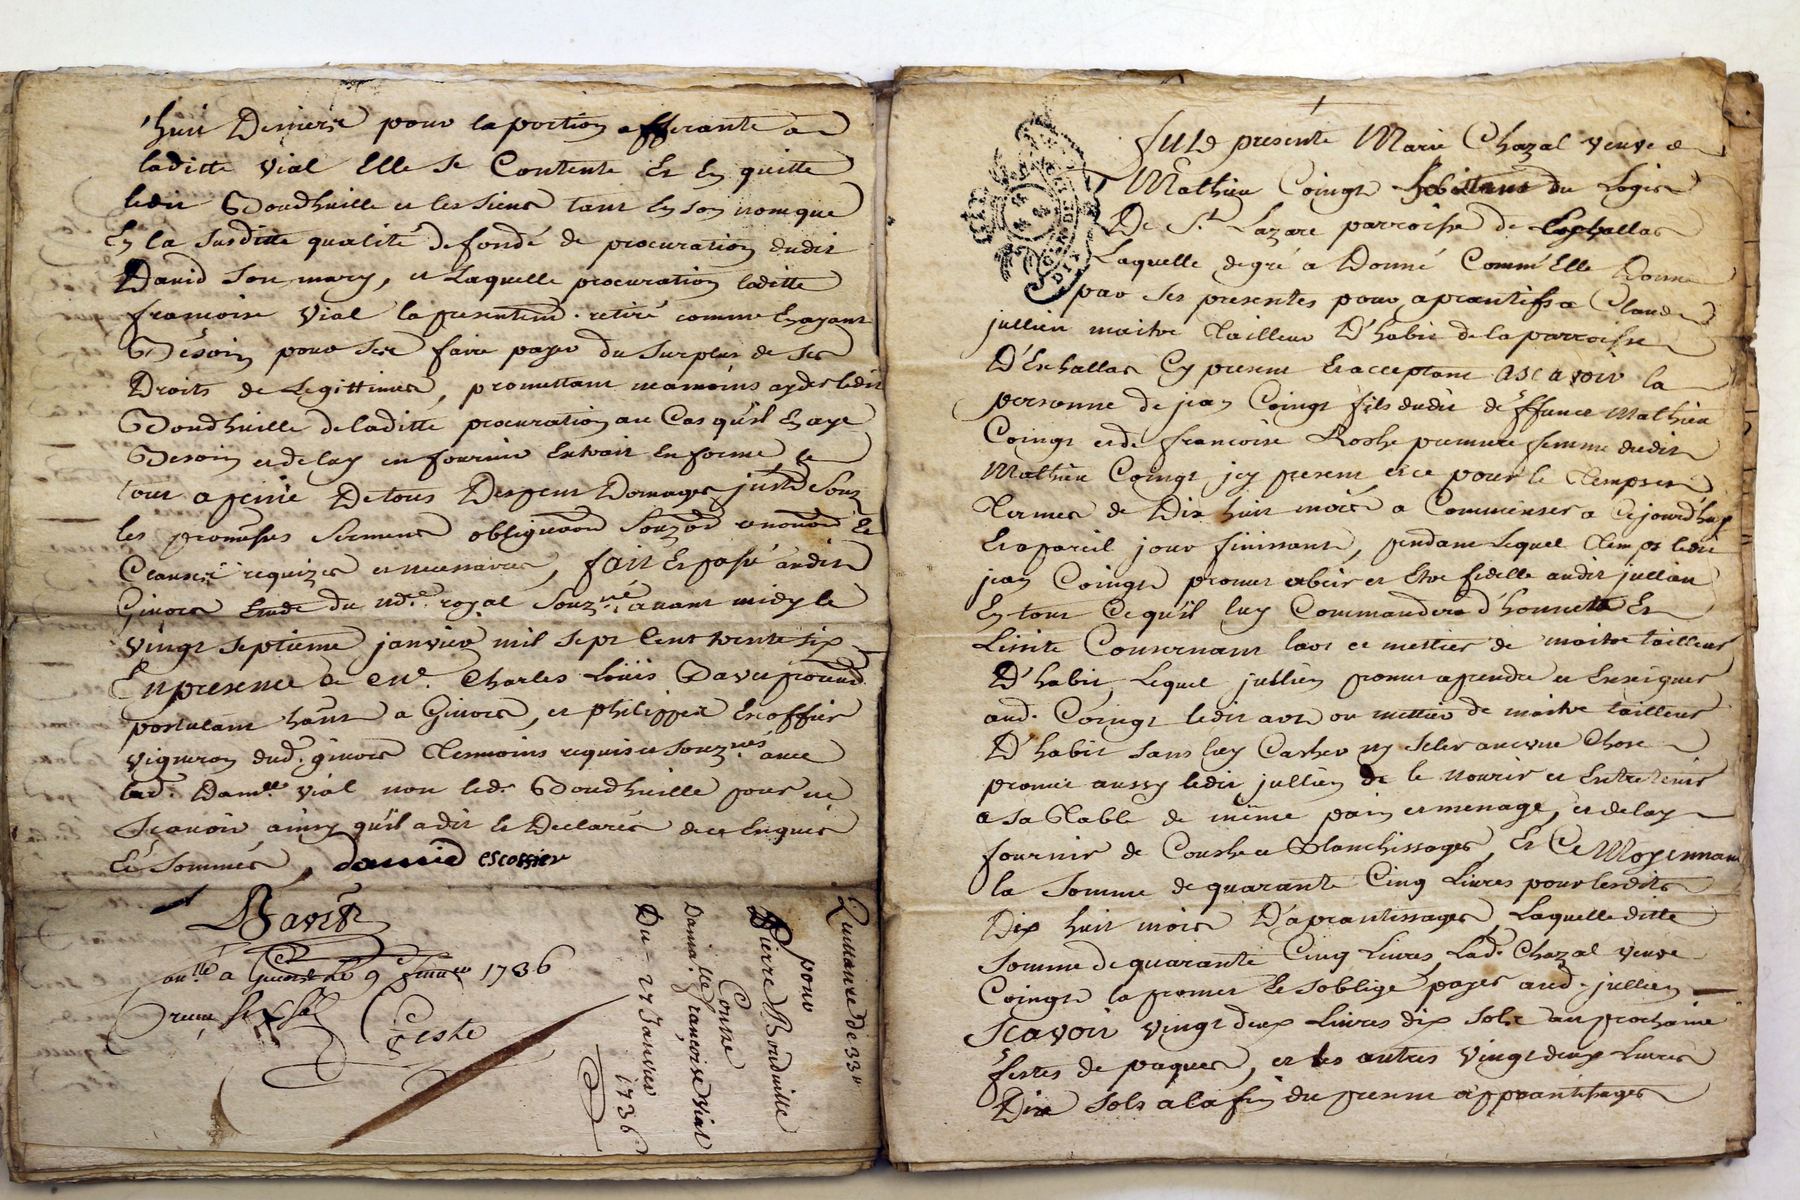 huit Deniers pour la portion afferante a
laditte vial Elle se Contente Et En quitte
ledit Boudhuille et les siens tant En son nom que
En la susditte qualité de fondé de procuration dudit
David son mary, et Laquelle procuration laditte
francoise Vial la presentemt. retiré comme En ayant
Bésoin pour se faire payer du surplus de ses
Droits de Legittimes, promettant neamoins ayder ledit
Boudhuille de laditte procuration au Cas qu'il En aye
Besoin et de luy en fournir Extrait En forme le
tout a peine De tous Despens Domages
les promesses serment obligaõn renonõn Et
Clauses requizes et necessaires, fait Et passé audit
Givors Etude du nore. royal Souzné. avant midy le
vingt septieme janvier mil sept Cent trente six
En presence de Me. Charles Loüis Bavet
postulant a Givors, et philippe Escoffier
vigneron dud. givors Tesmoins requis et souznés avec
lad. Damlle vial non led. Boudhuille pour ne
scavoir ainsy qu'il a dit Et Declaré de ce Enquis
Et sommés, david escoffier
Bavet
onllé a Givors le 9 fevrier 1736
recu
Teste
Quittance de 33ll
pour
Pierre Bouduille
Contre
Damlle. françoise Vial
Du = 27 Janvier 1736
Fut presente Marie Chazal veuve de
Mathieu Coingt habitant du Logis
De St. Lazare parroisse de Eschallas
Laquelle de gré a Donné Comm'Elle Donne
par ses presentes pour aprantifs a Claude
jullien maitre Tailleur D'habit de la parroisse
D'Eschallas Cy present Et acceptant ascavoir la
personne de jean Coingt fils dudit deffunct Mathieu
Coingt et de francoise Roshe premiere femme dudit
Mathieu Coingt jcy present et ce pour le Temps et
Termes de Dix huit mois a Commenser a Cejourd'huy
Et a pareil jour finissant, pendant Lequel Temps ledit
jean Coingt promet obeir et Etre fidelle audit jullien
En tout Ce qu'il luy Commandera d'honneste Et
Lisite Consernant lart et mettier de maitre tailleur
D'habit, Lequel jullien promet aprendre et Enseigner
aud. Coingt ledit art ou mettier de maitre tailleur
D'habit sans luy Casher ny seler aucune Chose
promet aussy ledit jullien de le nourir et Entretenir
a sa Table de même pain et menage, et de luy
fournir de Coushe et Blanchissages, Et Ce Moyennant
la somme de quarante Cinq Livres pour lesdits
Dix huit mois D'aprantissages, Laquelle ditte
somme de quarante Cinq Livres, Lad. Chazal veuve
Coingt la promet Et soblige payer aud. jullien
scavoir vingt deux Livres dix sols au prochaine
festes de paques, et les autres vingt deux Livres
Dix sols a la fin du present apprantissages